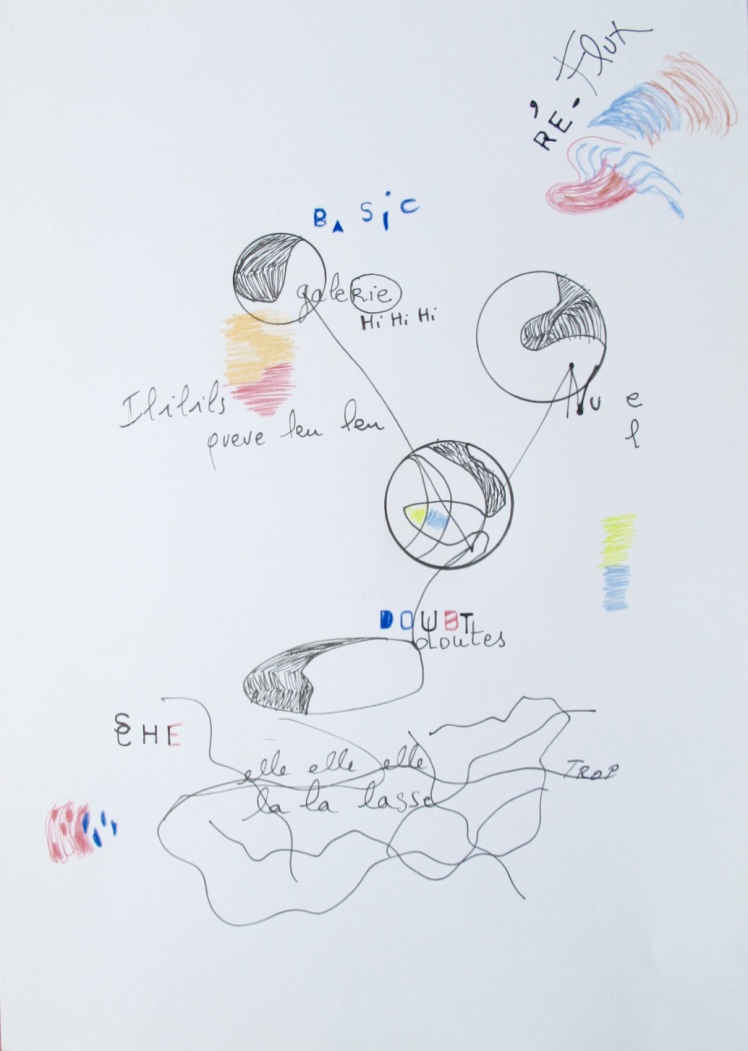 RÉ-Flux
BASiC
galerie
Hi Hi Hi
Ililils
queue leu leu
Nu e
l
DOUBT
doutes
SHE
elle elle elle
TROP
la la lasse